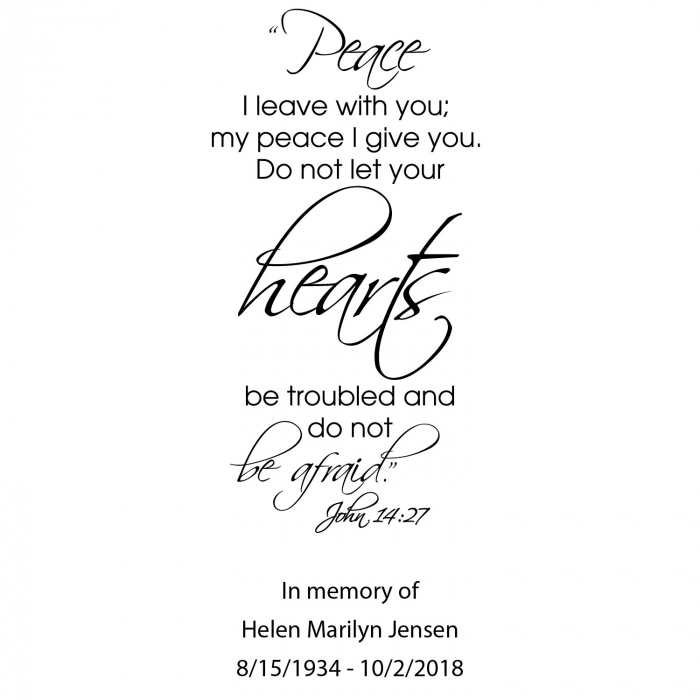 “Peace
I leave with you;
my peace I give you.
Do not let your
hearts
be troubled and
do not
be afraid.”
John 14:27
In memory of
Helen Marilyn Jensen
8/15/1934 - 10/2/2018